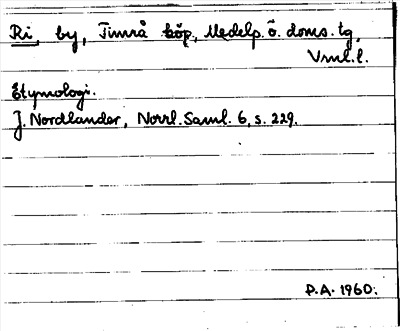 Ri, by, Timrå köp., Medelp. ö. doms. tg.
Vrnl. l.
Etymologi.
J. Nordlander, Norrl. Saml. 6, s. 229.
P.A. 1960.